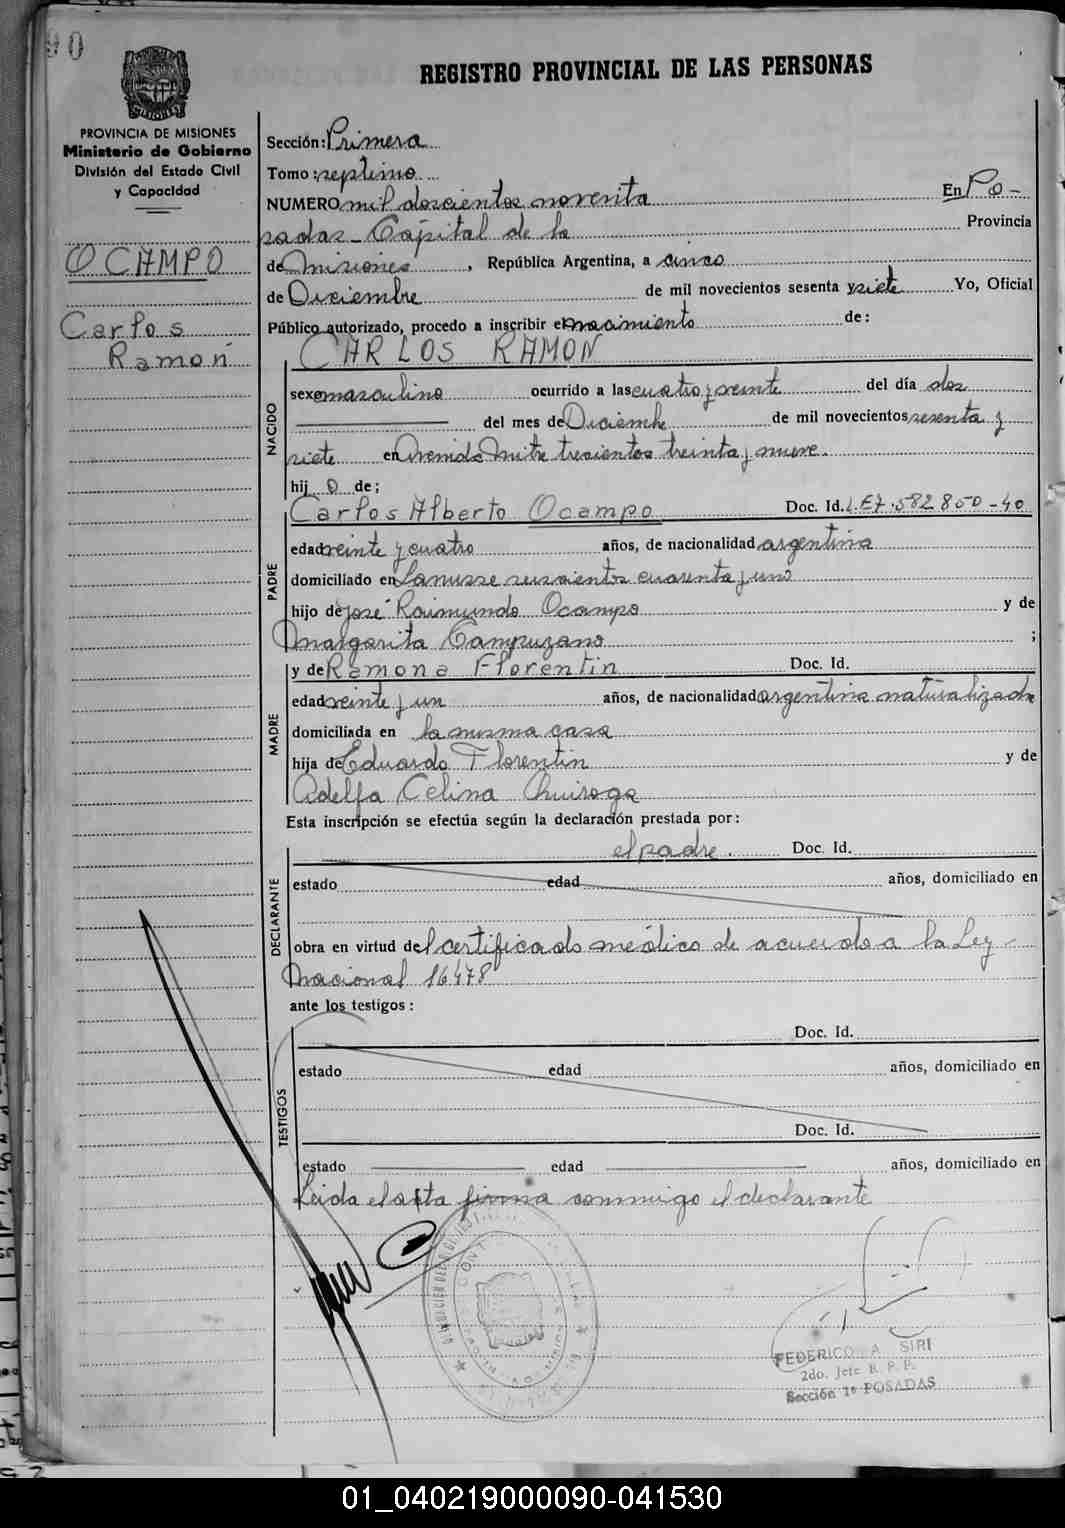 90
REGISTRO PROVINCIAL DE LAS PERSONAS
PROVINCIA DE MISIONES
Ministerio de Gobierno
División del Estado Civil
y Capacidad
OCAMPO
Carlos
Ramón
Sección: Primera
Tomo: septimo
NUMERO mil doscientos noventa En Po-
sadas - Capital de la Provincia
de Misiones, República Argentina, a cinco
de Diciembre de mil novecientos sesenta y siete Yo, Oficial
Público autorizado, procedo a inscribir el nacimiento de:
CARLOS RAMON
NACIDO
sexo masculino ocurrido a las cuatro y veinte del día dos
del mes de Diciembre de mil novecientos sesenta y
siete en Avenida Mitre trescientos treinta y nueve.
hijo de;
Carlos Alberto Ocampo Doc. Id. L.E 7.582.850-40
PADRE
edad veinte y cuatro años, de nacionalidad argentina
domiciliado en Lanusse seiscientos cuarenta y uno
hijo de José Raimundo Ocampo y de
Margarita Campuzano ;
y de Ramona Florentin Doc. Id.
MADRE
edad veinte y un años, de nacionalidad argentina naturalizada
domiciliada en la misma casa
hija de Eduardo Florentin y de
Adelfa Celina Quiroga
Esta inscripción se efectúa según la declaración prestada por:
el padre. Doc. Id.
DECLARANTE
estado edad años, domiciliado en
obra en virtud del certificado médico de acuerdo a la Ley
Nacional 16478
ante los testigos:
Doc. Id.
TESTIGOS
estado edad años, domiciliado en
Doc. Id.
estado edad años, domiciliado en
Leida el acta firma conmigo el declarante
FEDERICO A SIRI
2do. Jefe R. P. P.
Sección 1ª POSADAS
01_040219000090-041530